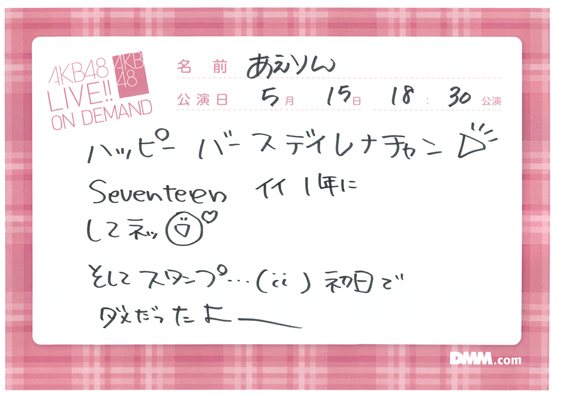 AKB48
LIVE!!
ON DEMAND
AKB
48
名前 あえりん
公演日 5月 15日 18:30 公演
ハッピー バースデイレナチャン
Seventeen イイ 1年に
してネッ
そしてスタンプ…(ii) 初日で
ダメだったよー
DMM.com